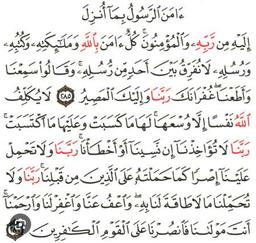 ءَامَنَ ٱلرَّسُولُ بِمَآ أُنزِلَ
إِلَيْهِ مِن رَّبِّهِۦ وَٱلْمُؤْمِنُونَ ۚ كُلٌّ ءَامَنَ بِٱللَّهِ وَمَلَـٰٓئِكَتِهِۦ وَكُتُبِهِۦ
وَرُسُلِهِۦ لَا نُفَرِّقُ بَيْنَ أَحَدٍ مِّن رُّسُلِهِۦ ۚ وَقَالُوا۟ سَمِعْنَا
وَأَطَعْنَا ۖ غُفْرَانَكَ رَبَّنَا وَإِلَيْكَ ٱلْمَصِيرُ ٢٨٥ لَا يُكَلِّفُ
ٱللَّهُ نَفْسًا إِلَّا وُسْعَهَا ۚ لَهَا مَا كَسَبَتْ وَعَلَيْهَا مَا ٱكْتَسَبَتْ ۗ
رَبَّنَا لَا تُؤَاخِذْنَآ إِن نَّسِينَآ أَوْ أَخْطَأْنَا ۚ رَبَّنَا وَلَا تَحْمِلْ
عَلَيْنَآ إِصْرًا كَمَا حَمَلْتَهُۥ عَلَى ٱلَّذِينَ مِن قَبْلِنَا ۚ رَبَّنَا وَلَا
تُحَمِّلْنَا مَا لَا طَاقَةَ لَنَا بِهِۦ ۖ وَٱعْفُ عَنَّا وَٱغْفِرْ لَنَا وَٱرْحَمْنَآ ۚ
أَنتَ مَوْلَىٰنَا فَٱنصُرْنَا عَلَى ٱلْقَوْمِ ٱلْكَـٰفِرِينَ